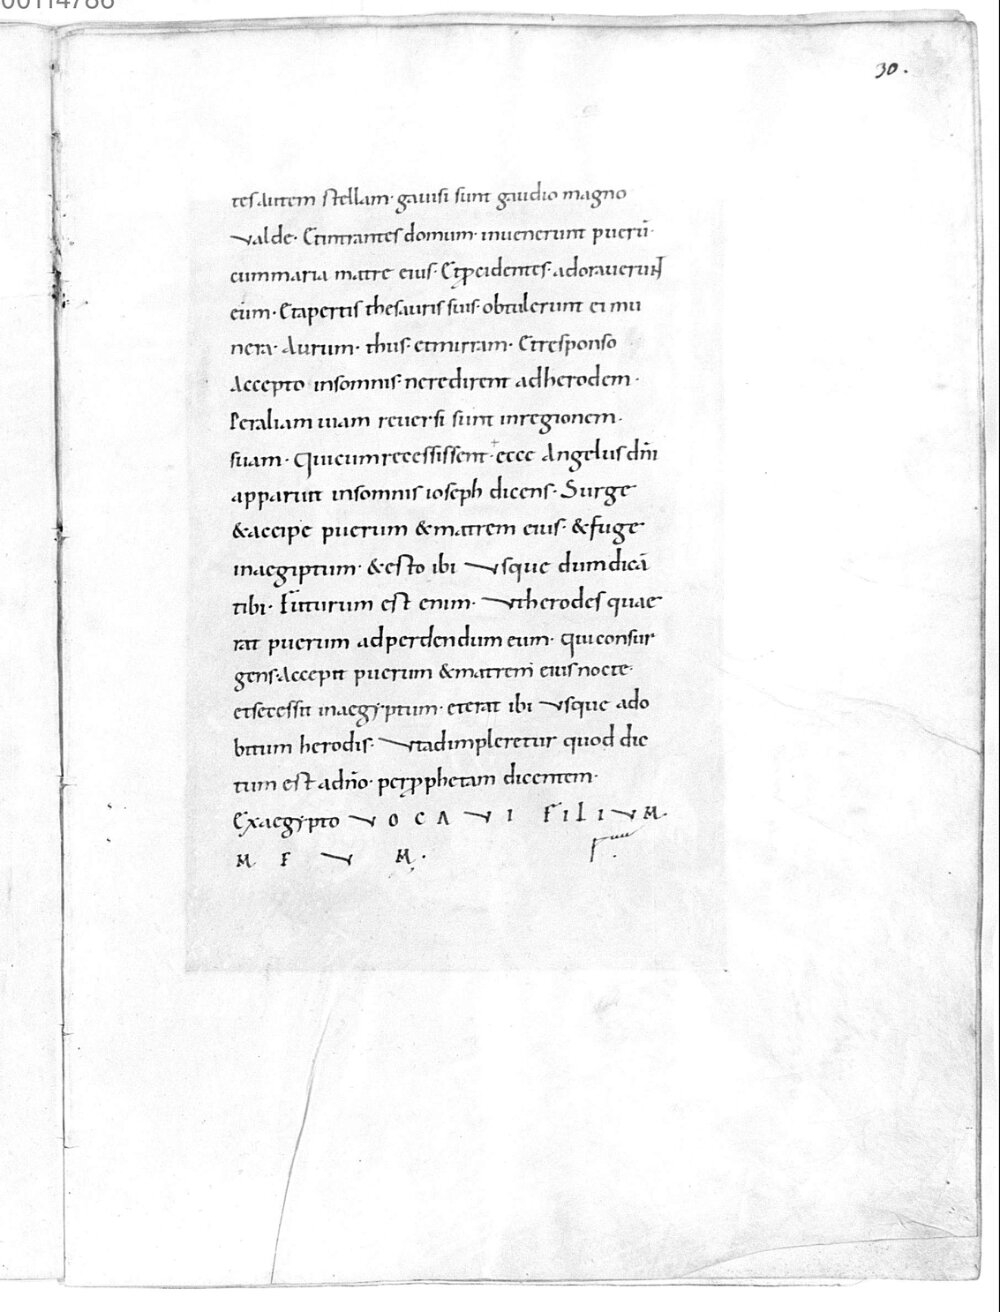 00114786
30.
tes autem stellam· gauisi sunt gaudio magno
valde· Et intrantes domum· inuenerunt puerū·
cum maria matre eius· Et ꝓcidentes· adorauerunt
eum· Et apertis thesauris suis· obtulerunt ei mu
nera· Aurum· thus· et mirram· Et responso
Accepto insomnis· ne redirent ad herodem·
Per aliam uiam reuersi sunt in regionem·
suam· Qui cum recessissent· ecce Angelus dn̄i
apparuit insomnis ioseph dicens· Surge
& accipe puerum & matrem eius· & fuge
in aegiptum· & esto ibi vsque dum dicā
tibi· Futurum est enim· vt herodes quae
rat puerum ad perdendum eum· qui consur
gens Accepit puerum & matrem eius nocte·
et secessit in aegyptum· et erat ibi vsque ad o
bitum herodis· vt adimpleretur quod dic
tum est a dn̄o· per ꝓphetam dicentem·
Ex aegypto VOCAVI FILIVM·
MEVM·